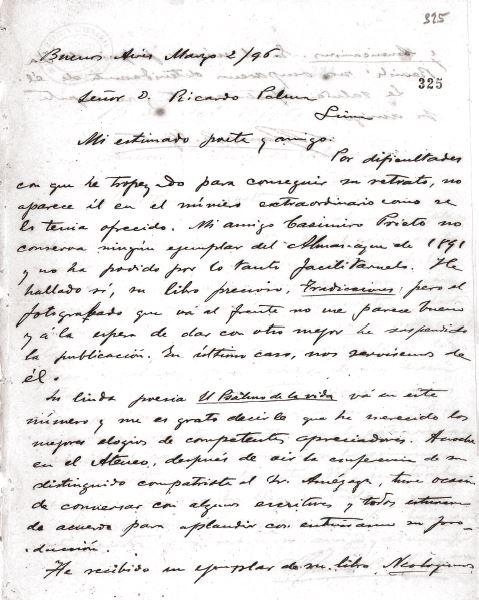 325
Buenos Aires Marzo 2/96
325
Señor D. Ricardo Palma
Lima
Mi estimado poeta y amigo:
Por dificultades
con que he tropezado para conseguir su retrato, no
aparece él en el número extraordinario como se
lo tenia ofrecido. Mi amigo Casimiro Prieto no
conserva ningún ejemplar del Almanaque de 1891
y no ha podido por lo tanto facilitarmelo. He
hallado sí, su libro precioso, Tradiciones; pero el
fotograbado que vá al frente no me parece bueno
y á la espera de dar con otro mejor he suspendido
la publicación. En último caso, nos serviremos de
él.
Su linda poesia El Bautismo de la vida vá en este
número y me es grato decirle que ha merecido los
mejores elogios de competentes apreciadores. Anoche
en el Ateneo, después de oir la conferencia de su
distinguido compatriota el Dr. Amézaga, tuve ocasión
de conversar con algunos escritores y todos estuvieron
de acuerdo para aplaudir con entusiasmo su pro-
ducción.
He recibido un ejemplar de su libro Neologismos